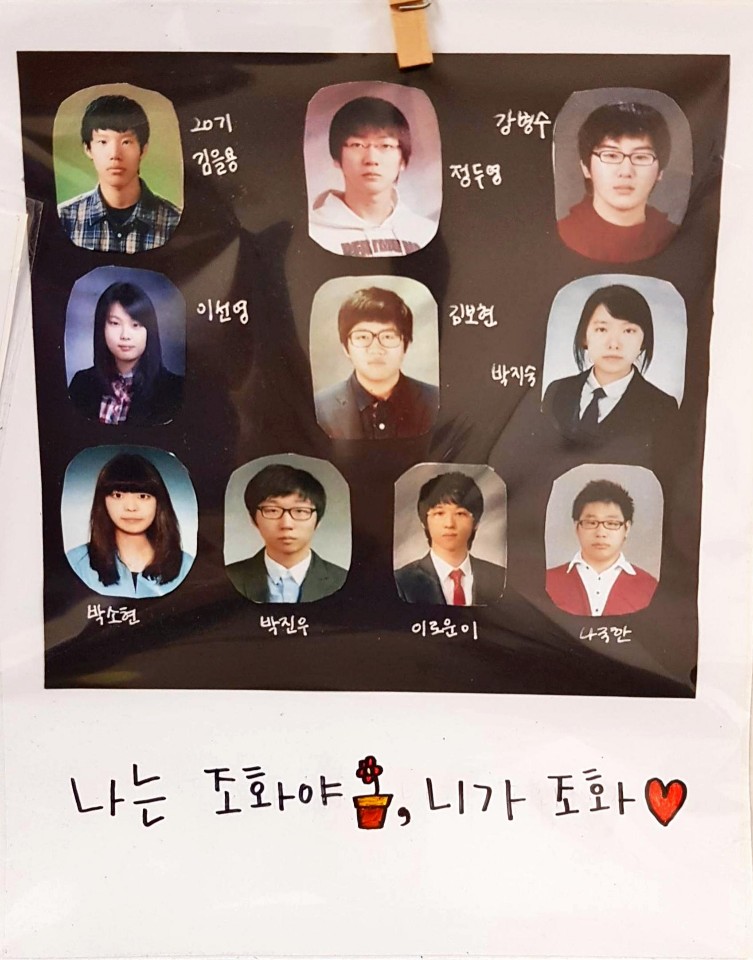 20기
김을용
정두영
강병수
이선영
김보현
박지숙
박소현
박진우
이로운이
나국한
나는 조화야, 니가 조화